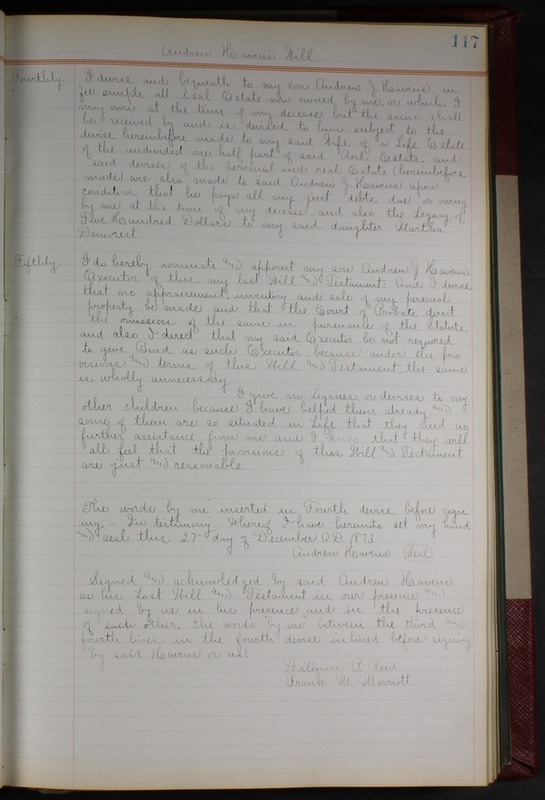 117
Andrew Havens Will
Fourthly. I devise and bequeath to my son Andrew J Havens in
fee simple all Real Estate now owned by me, or which I
may own at the time of my decease but the same shall
be received by and is devised to him subject to the
devise hereinbefore made to my said Wife of a Life Estate
of the undivided one half part of said Real Estate. and
said devises of the personal and real Estate (hereinbefore
made) are also made to said Andrew J. Havens upon
condition that he pays all my just debts due or owing
by me at the time of my decease, and also the Legacy of
Five Hundred Dollars to my said daughter Martha
Demorest
Fifthly. I do hereby nominate and appoint my son Andrew J Havens
Executor of this my last Will and Testament. And I desire
that no appraisement, inventory and sale of my personal
property be made and that the Court of Probate direct
the omission of the same in pursuance of the statute.
and also I direct that my said Executor be not required
to give Bond as such Executor, because under the pro
visions and terms of this Will and Testament the same
is wholly unnecessary
I give no legacies or devises to my
other children because I have helped them already and
some of them are so situated in Life that they need no
further assistance from me and I know that they will
all feel that the provisions of this Will and Testament
are just and reasonable
The words "by me" inserted in Fourth devise before sign
ing - In testimony Whereof I have hereunto set my hand
and seal this 27 day of December A.D. 1873
Andrew Havens (Seal)
Signed and acknowledged by said Andrew Havens
as his Last Will and Testament in our presence and
signed by us in his presence and in the presence
of each other, the words "by me" between the third and
fourth lines in the fourth devise inlined before signing
by said Havens or us.
William A. Reid
Frank M. Marriott.